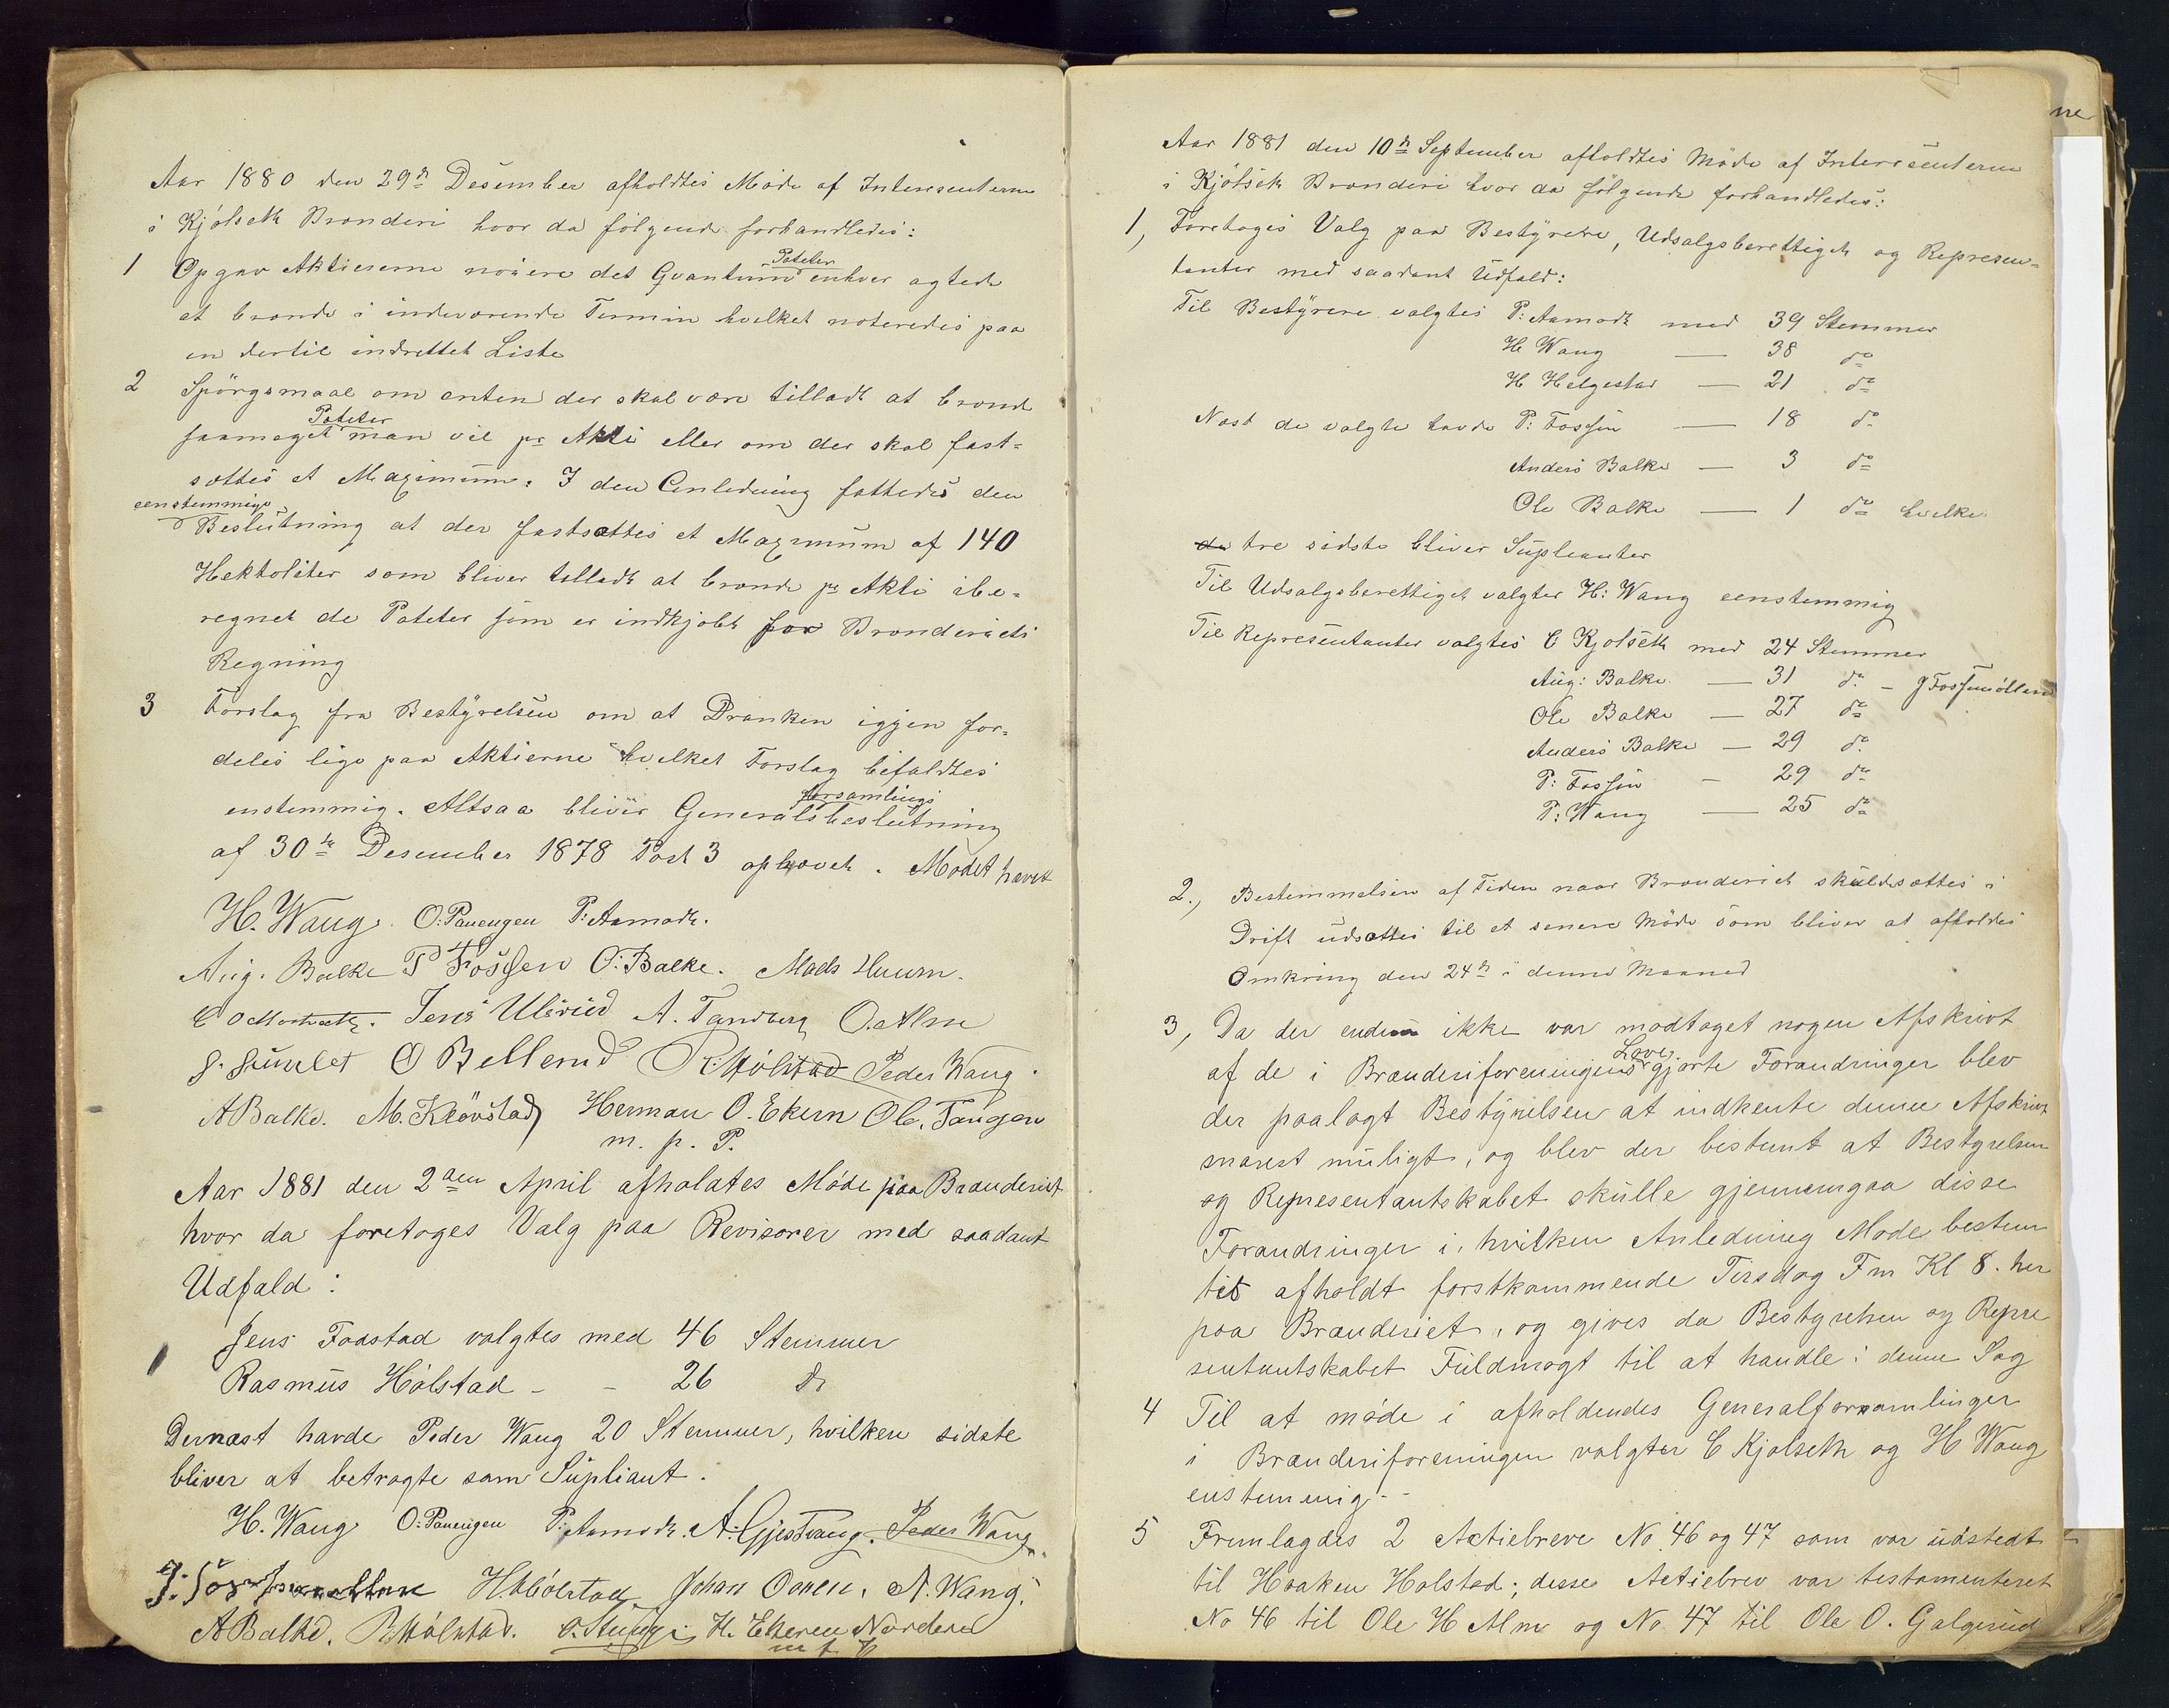 Aar 1880 den 29de Desember afholdtes Møde af Interesenterne
i Kjølseth Brænderi hvor da følgende forhandledes:
1 Opgav Aktieeierne nøiere det Qvantum Poteter enhver agtede
at brænde i indeværende Termin hvilket noteredes paa
en dertil indrettet Liste
2 Spörgsmaal om enten der skal være tilladt at brænde
saameget Poteter man vil pr Aktie eller om der skal fast-
sættes et Maximum. I den Anledning fattedes den
eenstemmige
Beslutning at der fastsættes et Maximum af 140
Hektoliter som bliver tilladt at brænde pr Aktie ibe-
regnet de Poteter som er indkjøbt for Brænderiets
Regning
3 Forslag fra Bestyrelsen om at Dranken igjen for-
deles lige paa Aktierne hvilket Forslag bifaldtes
enstemmig. Altsaa bliver Generalforsamlingsbeslutning
af 30te Desember 1878 Post 3 ophævet. Mødet hævet
H. Wang. O: Panengen P: Aamodt.
Aug. Balke P Fossen O: Balke. Mads Huum.
Jens Ulsrud A. Tandberg O. Alm
O Bellerud R. Hölstad Peder Wang.
A Balke. M. Kløvstad Herman O. Ekern Ole Tangen
m. p. P.
Aar 1881 den 2den April afholdtes Møde paa Brænderiet
hvor da foretoges Valg paa Revisorer med saadant
Udfald:
Jens Faastad valgtes med 46 Stemmer
Rasmus Hólstad - - 26 do
Dernæst havde Peder Wang 20 Stemmer, hvilken sidste
bliver at betragte som Supliant.
H. Wang O: Panengen P: Aamodt. A. Gjestvang. Peder Wang.
H. Hólstad. Johan Oonen. N. Wang.
A Balke. R Hólstad. H. Ekeren Nordere
Aar 1881 den 10de September afholdtes Möde af Interesenterne
i Kjölseth Brænderi hvor da følgende forhandledes:
1, Foretoges Valg paa Bestyrere, Udsalgsberettiget og Represen-
tanter med saadant Udfald:
Til Bestyrere valgtes P: Aamodt med 39 Stemmer
H Wang — 38 do
H Helgestad — 21 do
Næst de valgte havde P: Fossen — 18 do
Anders Balke — 3 do
Ole Balke — 1 do hvilke
de tre sidste bliver Supleanter
Til Udsalgsberettiget valgtes H: Wang eenstemmig
Til Representanter valgtes C Kjolseth med 24 Stemmer
Aug: Balke — 31 do - J Fossmöllen
Ole Balke — 27 do
Anders Balke — 29 do
P: Fossen — 29 do
P: Wang — 25 do
2., Bestemmelsen af Tiden naar Brænderiet skuldsættes i
Drift udsættes til et senere Möde som bliver at afholdes
Omkring den 24de i denne Maaned
3, Da der endnu ikke var modtaget nogen Afskrivt
af de i Brænderiforeningens Love gjorte Forandringer blev
der paalagt Bestyrelsen at indhente denne Afskrivt
snarest muligt, og blev der bestemt at Bestyrelsen
og Representantskabet skulle gjennemgaa disse
Forandringer i hvilken Anledning Møde bestem
tes afholdt førstkommende Tirsdag Fm Kl 8. her
paa Brænderiet, og gives da Bestyrelsen og Repre
sentantskabet Fuldmagt til at handle i denne Sag
4 Til at møde i afholdendes Generalforsamlinger
i Brænderiforeningen valgtes C Kjølseth og H Wang
enstemmig -
5 Fremlagdes 2 Actiebreve No. 46 og 47 som var udstedt
til Haaken Holstad; disse Actiebrev var testamenteret
No 46 til Ole H Alm og No. 47 til Ole O. Galgerud